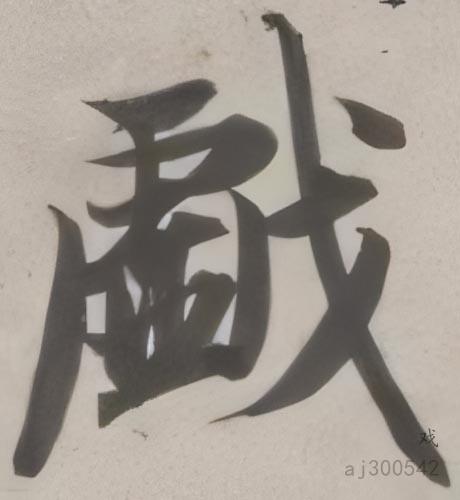 戯
戏
aj300542